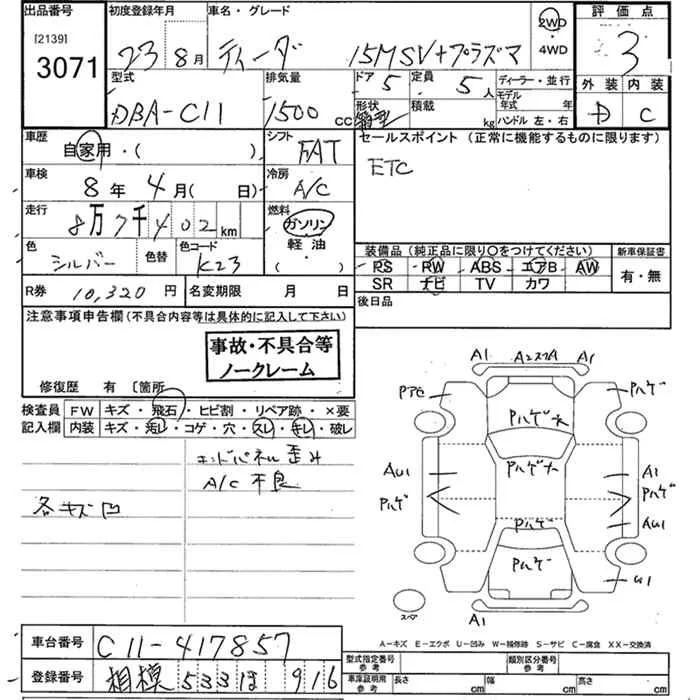 出品番号
[2139]
3071
初度登録年月
23年8月
車名・グレード
ティーダ 15M SV+プラズマ
2WD
・4WD
評価点
3
外装 内装
D C
型式
DBA-C11
排気量
1500 cc
ドア 5
定員 5人
形状 箱型
積載 kg
ディーラー・並行
モデル年式 年
ハンドル 左・右
車歴
自家用・( )
シフト
FAT
セールスポイント (正常に機能するものに限ります)
ETC
車検
8年 4月( 日)
冷房
A/C
走行
8万7千402km
燃料
ガソリン
軽油
( )
色
シルバー
色替
色コード
K23
装備品 (純正品に限り〇をつけてください)
新車保証書
PS RW ABS エアB AW
SR ナビ TV カワ
有・無
R券 10,320円
名変期限 月 日
後日品
注意事項申告欄(不具合内容等は具体的に記入して下さい)
事故・不具合等
ノークレーム
修復歴 有 〔箇所
検査員
記入欄
FW キズ・飛石・ヒビ割・リペア跡・×要
内装 キズ・汚レ・コゲ・穴・スレ・キレ・破レ
エンドパネル歪み
A/C 不良
各キズ凹
A1 A2スリA A1
Pハゲ
Pハゲ大
Pハゲ大
AU1 A1
Pハゲ Pハゲ
Pハゲ AU1
Pハゲ
U1
スペア
A1
A-キズ E-エクボ U-凹み W-補修跡 S-サビ C-腐食 XX-交換済
車台番号
C11-417857
登録番号
相模 533 ほ 916
型式指定番号 参考
類別区分番号 参考
車庫証明用 参考
長さ cm 幅 cm 高さ cm